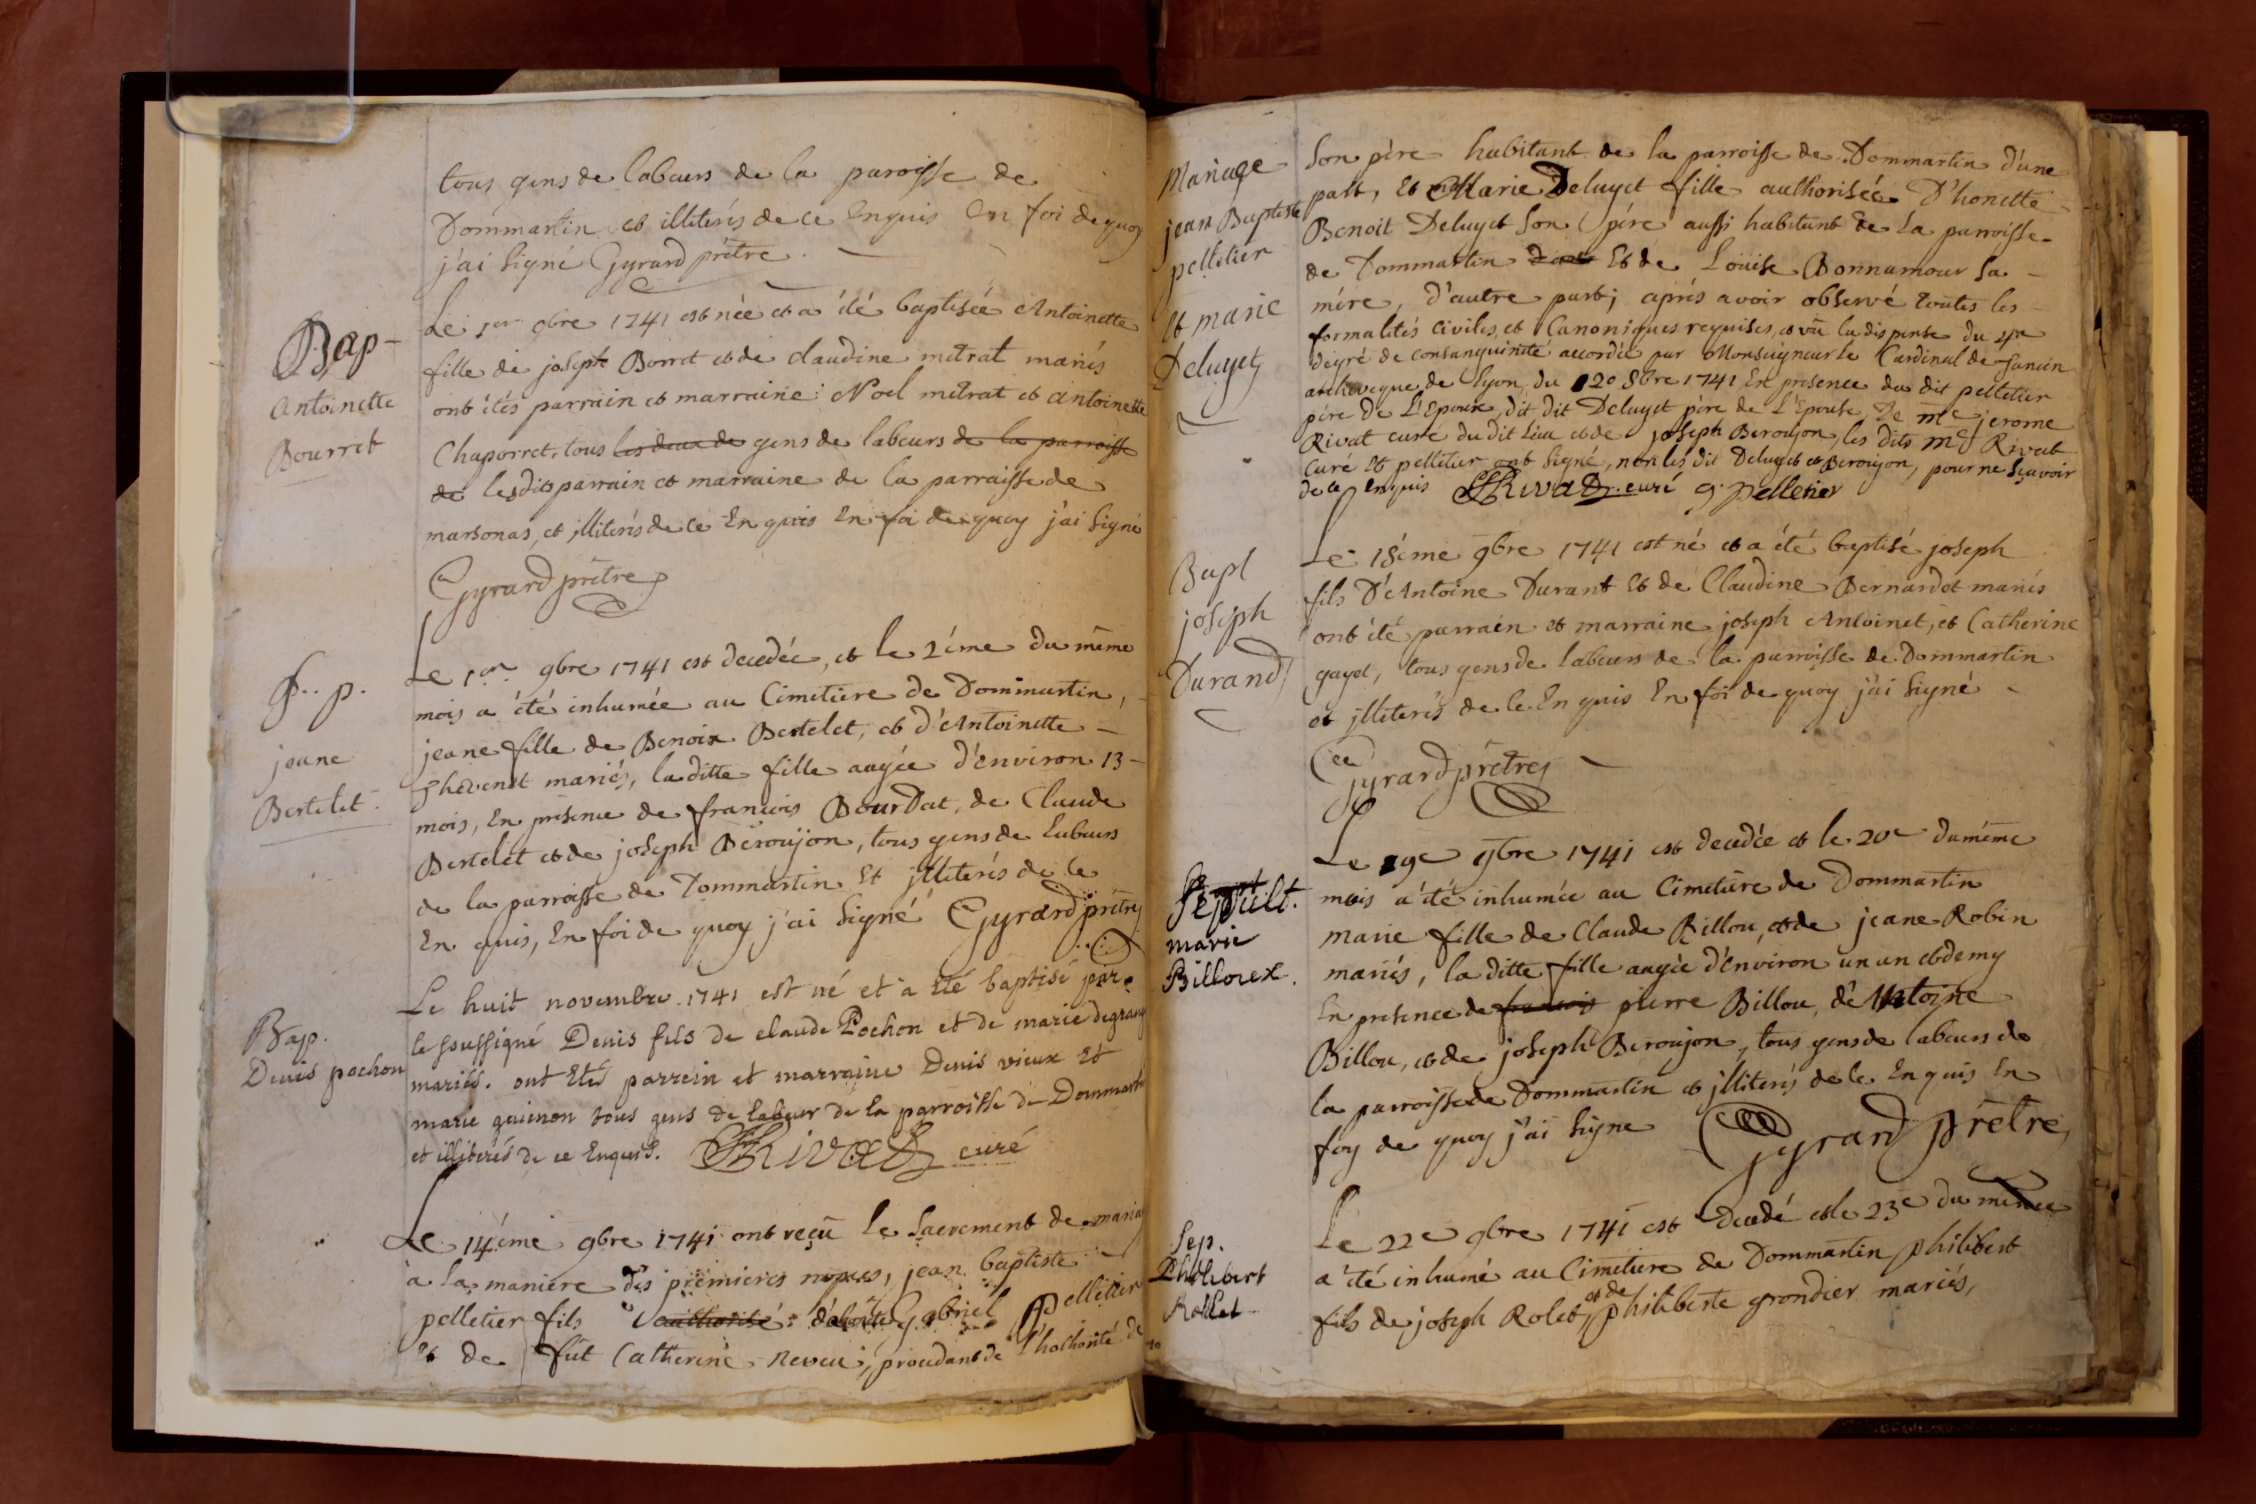 tous gens de labeurs de la paroisse de
Dommartin et illiterés de ce Enquis En foi de quoy
j'ai signé Gyrard prêtre.
Bap
Antoinette
Bourret
Le 1er 9bre 1741 est née et a été baptisée Antoinette
fille de joseph Borret et de claudine metrat mariés
ont étés parrain et marraine: Noel metrat et Antoinette
Chaporret, tous les deux de gens de labeurs de la parroisse
de lesdits parrain et marraine de la parraisse de
marsonas, et jlliterés de ce Enquis En foi de quoy j'ai signé
Gyrard prêtre
jeane
Bertelet
Le 1er 9bre 1741 est decedée, et le 2éme du même
mois a été inhumée au Cimetiere de Dommartin,
jeane fille de Benoix Bertelet, et d'Antoinette
Thevenet mariés, la ditte fille aagée d'environ 13
mois, En présence de francois Bourdat, de Claude
Bertelet et de joseph Beroujon, tous gens de Labeurs
de la parroisse de Dommartin Et jlliterés de ce
En quis, En foi de quoy j'ai signé Gyrard prêtre
Bap.
Denis pochon
Le huit novembre 1741 est né et a été baptisé par
le soussigné Denis fils de claude Pochon et de marie degrang
mariés. ont etés parrein et marraine Denis vieux Et
marie guienon tous gens de labeur de la parroisse de Dommart
et illiterés de ce Enquis. Rivat curé
Le 14éme 9bre 1741 ont reçû le Sacrement de maria
a la maniere des premieres nopces, jean baptiste
pelletier fils authorisé d'honête Gabriel Pelletier
et de fût Catherine Neveu, procedant de l'hothorité de
Mariage
jean Baptiste
pelletier
et marie
Deluyet
Son père habitant de la parroisse de Dommartin d'une
part, Et Marie Deluyet fille authorisée D'honette
Benoit Deluyet Son père aussi habitant de La parroisse
de Dommartin Et de Loüise Bonnamour Sa
mére, d'autre part; aprés avoir observé toutes les
formalités Civiles, et Canoniques requises, et vû la dispense du 4me
degré de consanguinité accordée par Monseigneur le Cardinal de Tancin
archeveque de Lyon, du 20 8bre 1741 En presence du dit pelletier
pére De L'Epoux, dit dit Deluyet pére de L'Epouse, De mc jerome
Rivat curé du dit Lieu et de joseph Beroujon, les dits mc Rivat
Curé Et pelletier ont signé, non les dit Deluyet et Beroujon, pour ne sçavoir
de ce Enquis Rivat curé g. pelletier
Bapt
joseph
Durand
Le 18éme 9bre 1741 est né et a été baptisé joseph
fils D'Antoine Durant Et de Claudine Bernardot mariés
ont été parrain et marraine joseph Antoinet, et Catherine
gayet, tous gens de labeurs de la parroisse de Dommartin
et jlliterés de ce Enquis En foi de quoy j'ai signé
Gyrard prêtre
Sepult.
marie
Billoux.
Le 19e 9bre 1741 est decedée et le 20e du même
mois a été inhumée au Cimetiere de Dommartin
Marie fille de Claude Billou, et de jeane Robin
mariés, la ditte fille aagée d'environ un an et demy
En presence de francois pierre Billou, de Antoine
Billou, et de joseph Beroujon, tous gens de labeurs de
la parroisse de Dommartin et jlliterés de ce Enquis En
foy de quoy j'ai signe Gyrard prêtre
Sep.
Philibert
Rollet
Le 22e 9bre 1741 est decedé et le 23e du même
a été inhumé au Cimetiere de Dommartin philibert
fils de joseph Rolet et de philiberte grondier mariés,